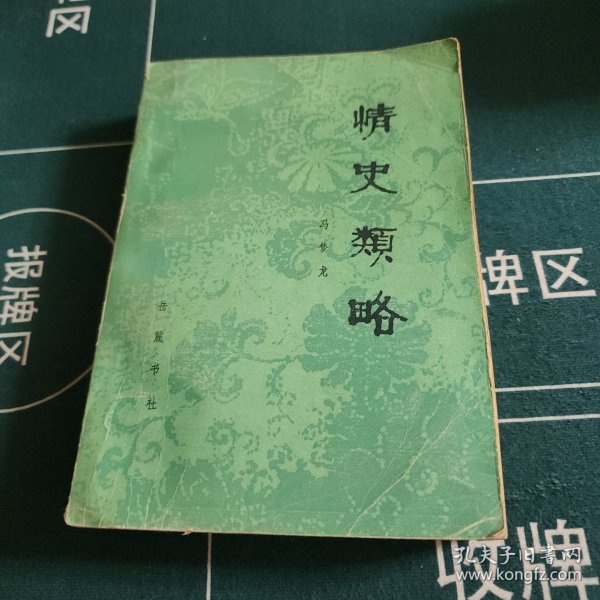 情史類略
冯梦龙
岳麓书社
区
报牌区
牌区
收牌
孔夫子旧书网
www.kongfz.com